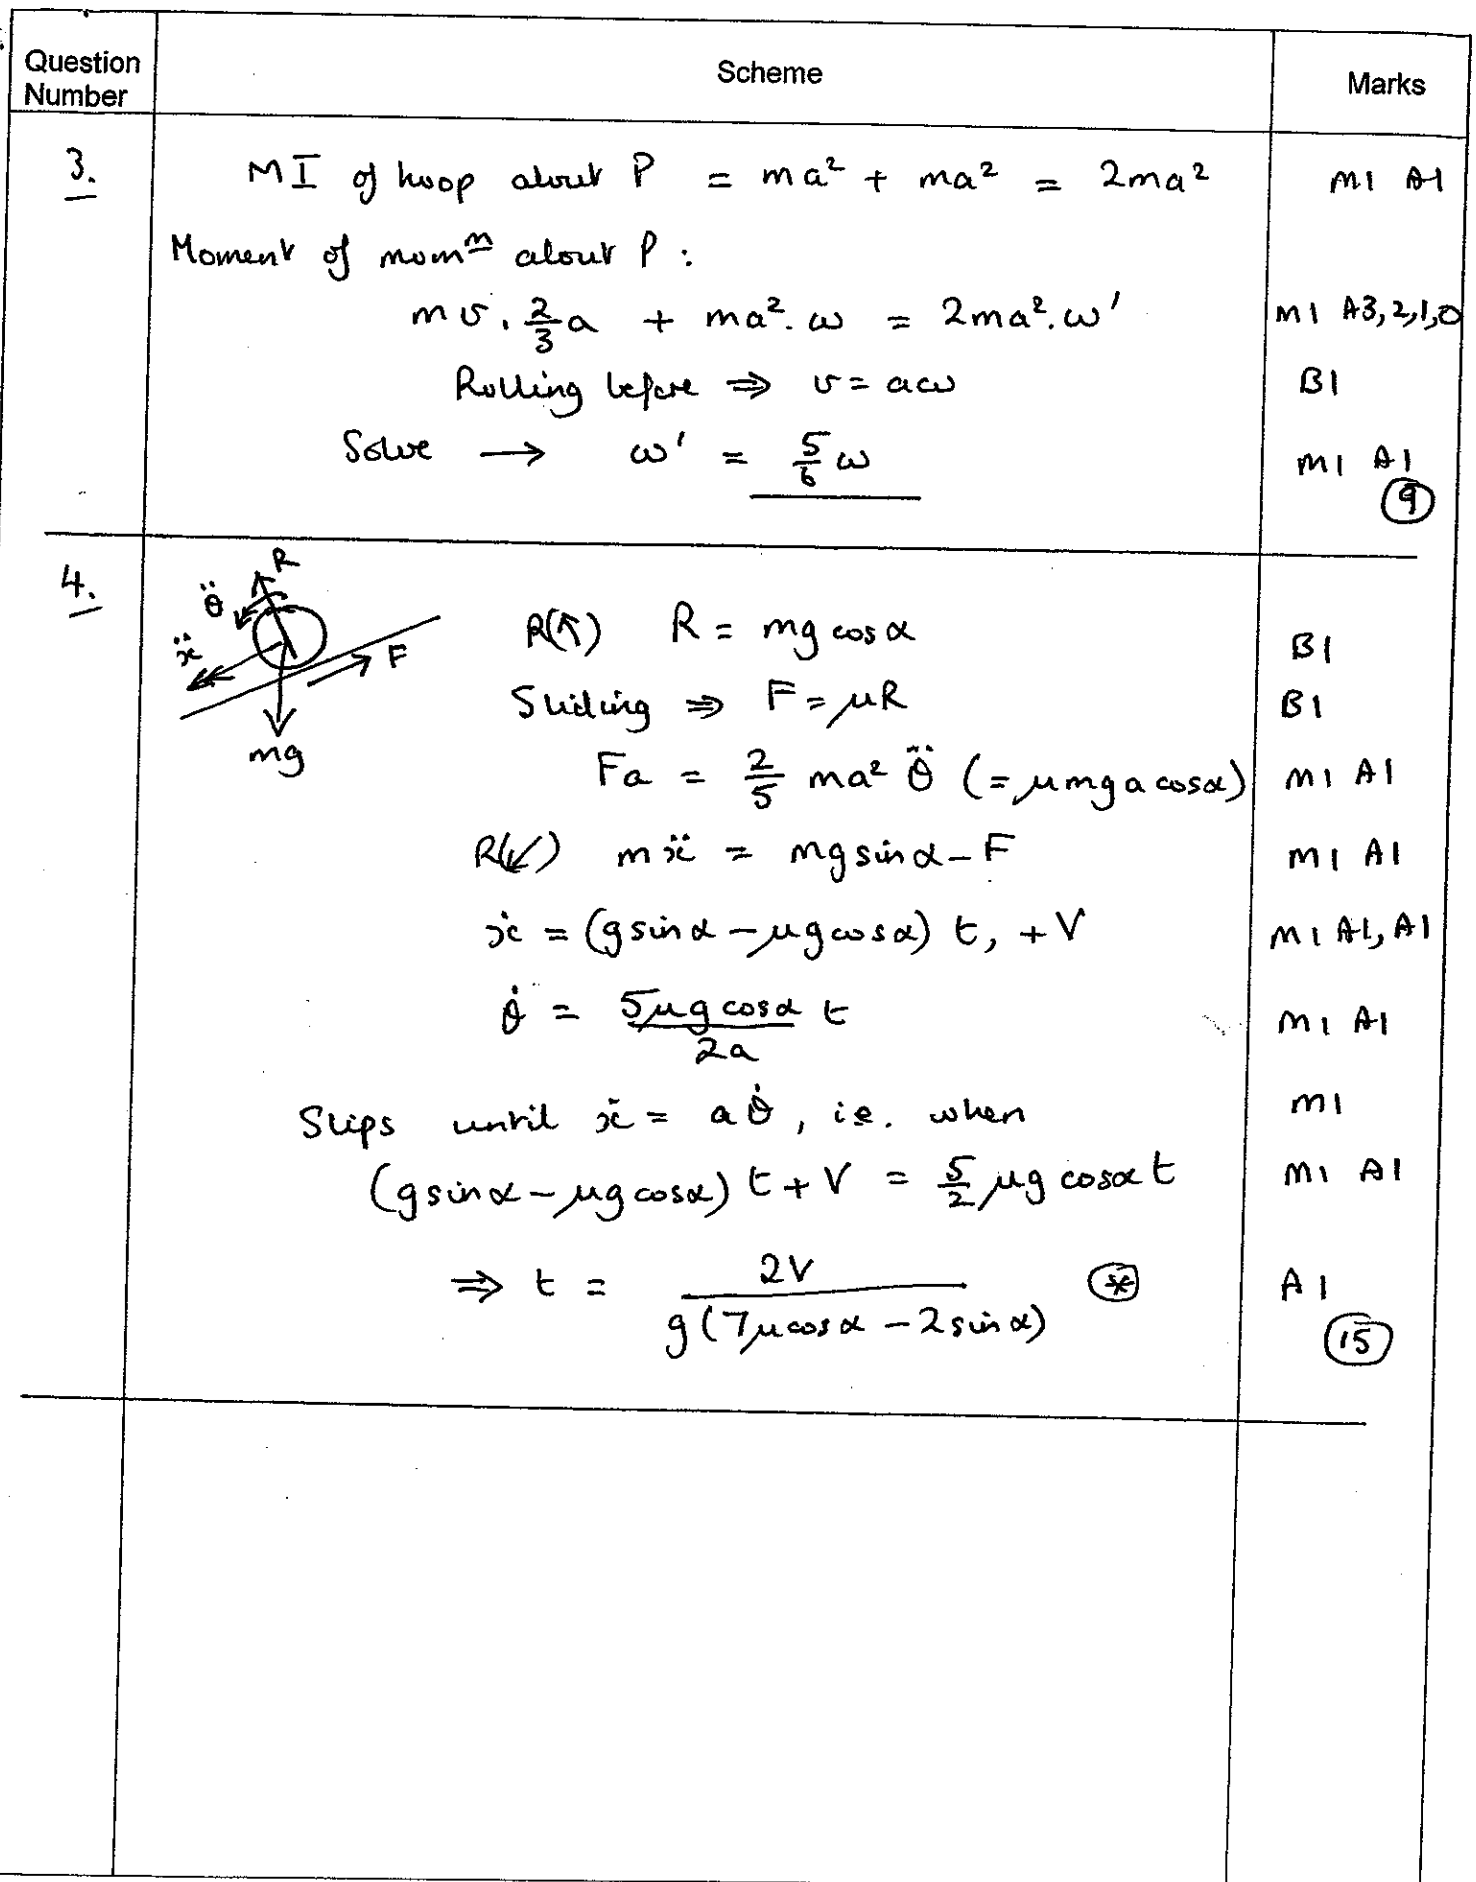 Question Number Scheme Marks
3. MI of hoop about P = ma² + ma² = 2ma² M1 A1
Moment of momᵐ about P:
mv. 2/3 a + ma².ω = 2ma².ω' M1 A3,2,1,0
Rolling before ⇒ v = aω B1
Solve → ω' = 5/6 ω M1 A1
(9)
4. R(↖) R = mg cos α B1
R
θ̈
ẍ
F
mg
Sliding ⇒ F = μR B1
Fa = 2/5 ma² θ̈ (= μmga cos α) M1 A1
R(↙) mẍ = mg sin α − F M1 A1
ẋ = (g sin α − μg cos α) t, + V M1 A1, A1
θ̇ = 5μg cos α / 2a t M1 A1
Slips until ẋ = aθ̇, i.e. when M1
(g sin α − μg cos α) t + V = 5/2 μg cos α t M1 A1
⇒ t = 2V / g(7μ cos α − 2 sin α) (*) A1
(15)